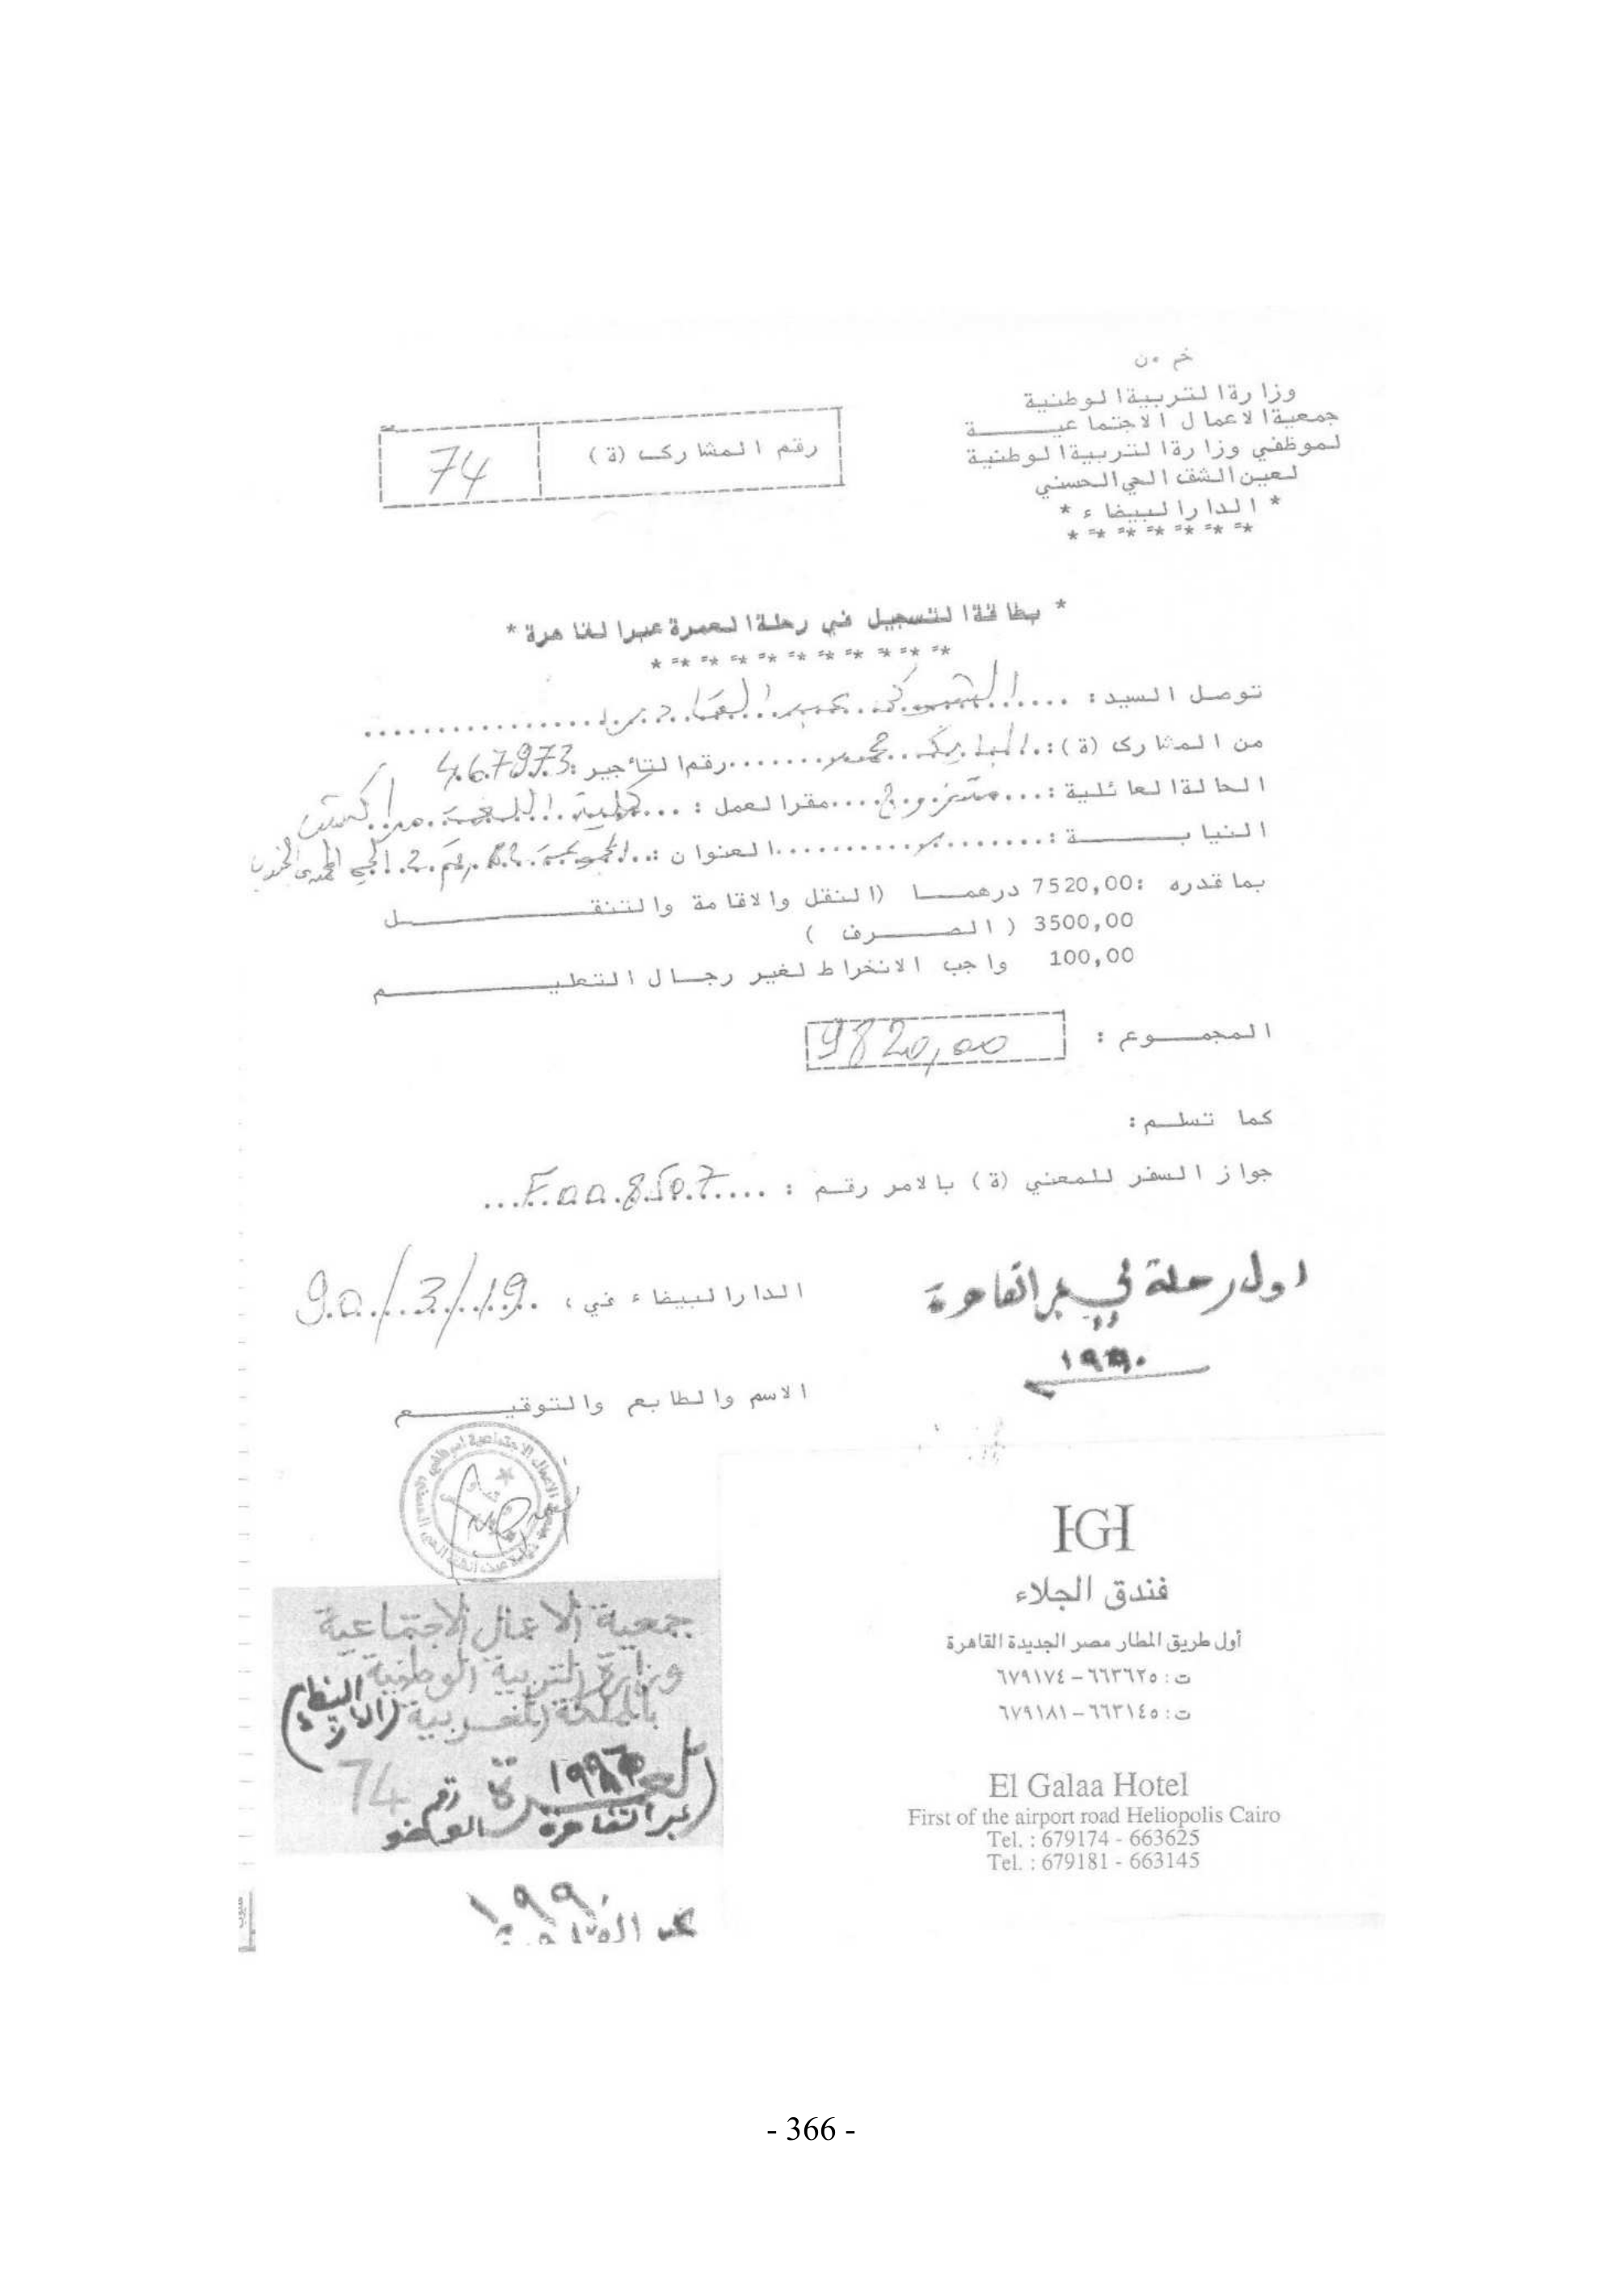 وزارة التربية الوطنية
جمعية الاعمال الاجتماعيـــة
لموظفي وزارة التربية الوطنية
لعين الشق الحي الحسني
* الدار البيضاء *
رقم المشارك (ة)
74
* بطاقة التسجيل في رحلة العمرة عبر القاهرة *
توصل السيد: ... عبد القادر
من المشارك (ة): ... محمد ... رقم التأجير: 467973
الحالة العائلية: متزوج ... مقر العمل: كلية اللغة مراكش
النيابـــة: ... العنوان: المجموعة ... رقم 2 الحي المحمدي
بما قدره: 7520,00 درهمـا (النقل والاقامة والتنقـــل
3500,00 (الصـــرف)
100,00 واجب الانخراط لغير رجال التعليـــم
المجمـــوع: 9820,00
كما تسلم:
جواز السفر للمعني (ة) بالامر رقم: ...
الدار البيضاء في، 90/3/19
اول رحلة في عبر القاهرة
١٩٩٠
الاسم والطابع والتوقيـــع
جمعية الاعمال الاجتماعية
وزارة التربية الوطنية
بالمملكة المغربية
العمرة ... رقم 74
عبر القاهرة العضو
١٩٩٠
فندق الجلاء
أول طريق المطار مصر الجديدة القاهرة
ت : ٦٦٣٦٢٥ – ٦٧٩١٧٤
ت : ٦٦٣١٤٥ – ٦٧٩١٨١
El Galaa Hotel
First of the airport road Heliopolis Cairo
Tel. : 679174 - 663625
Tel. : 679181 - 663145
- 366 -